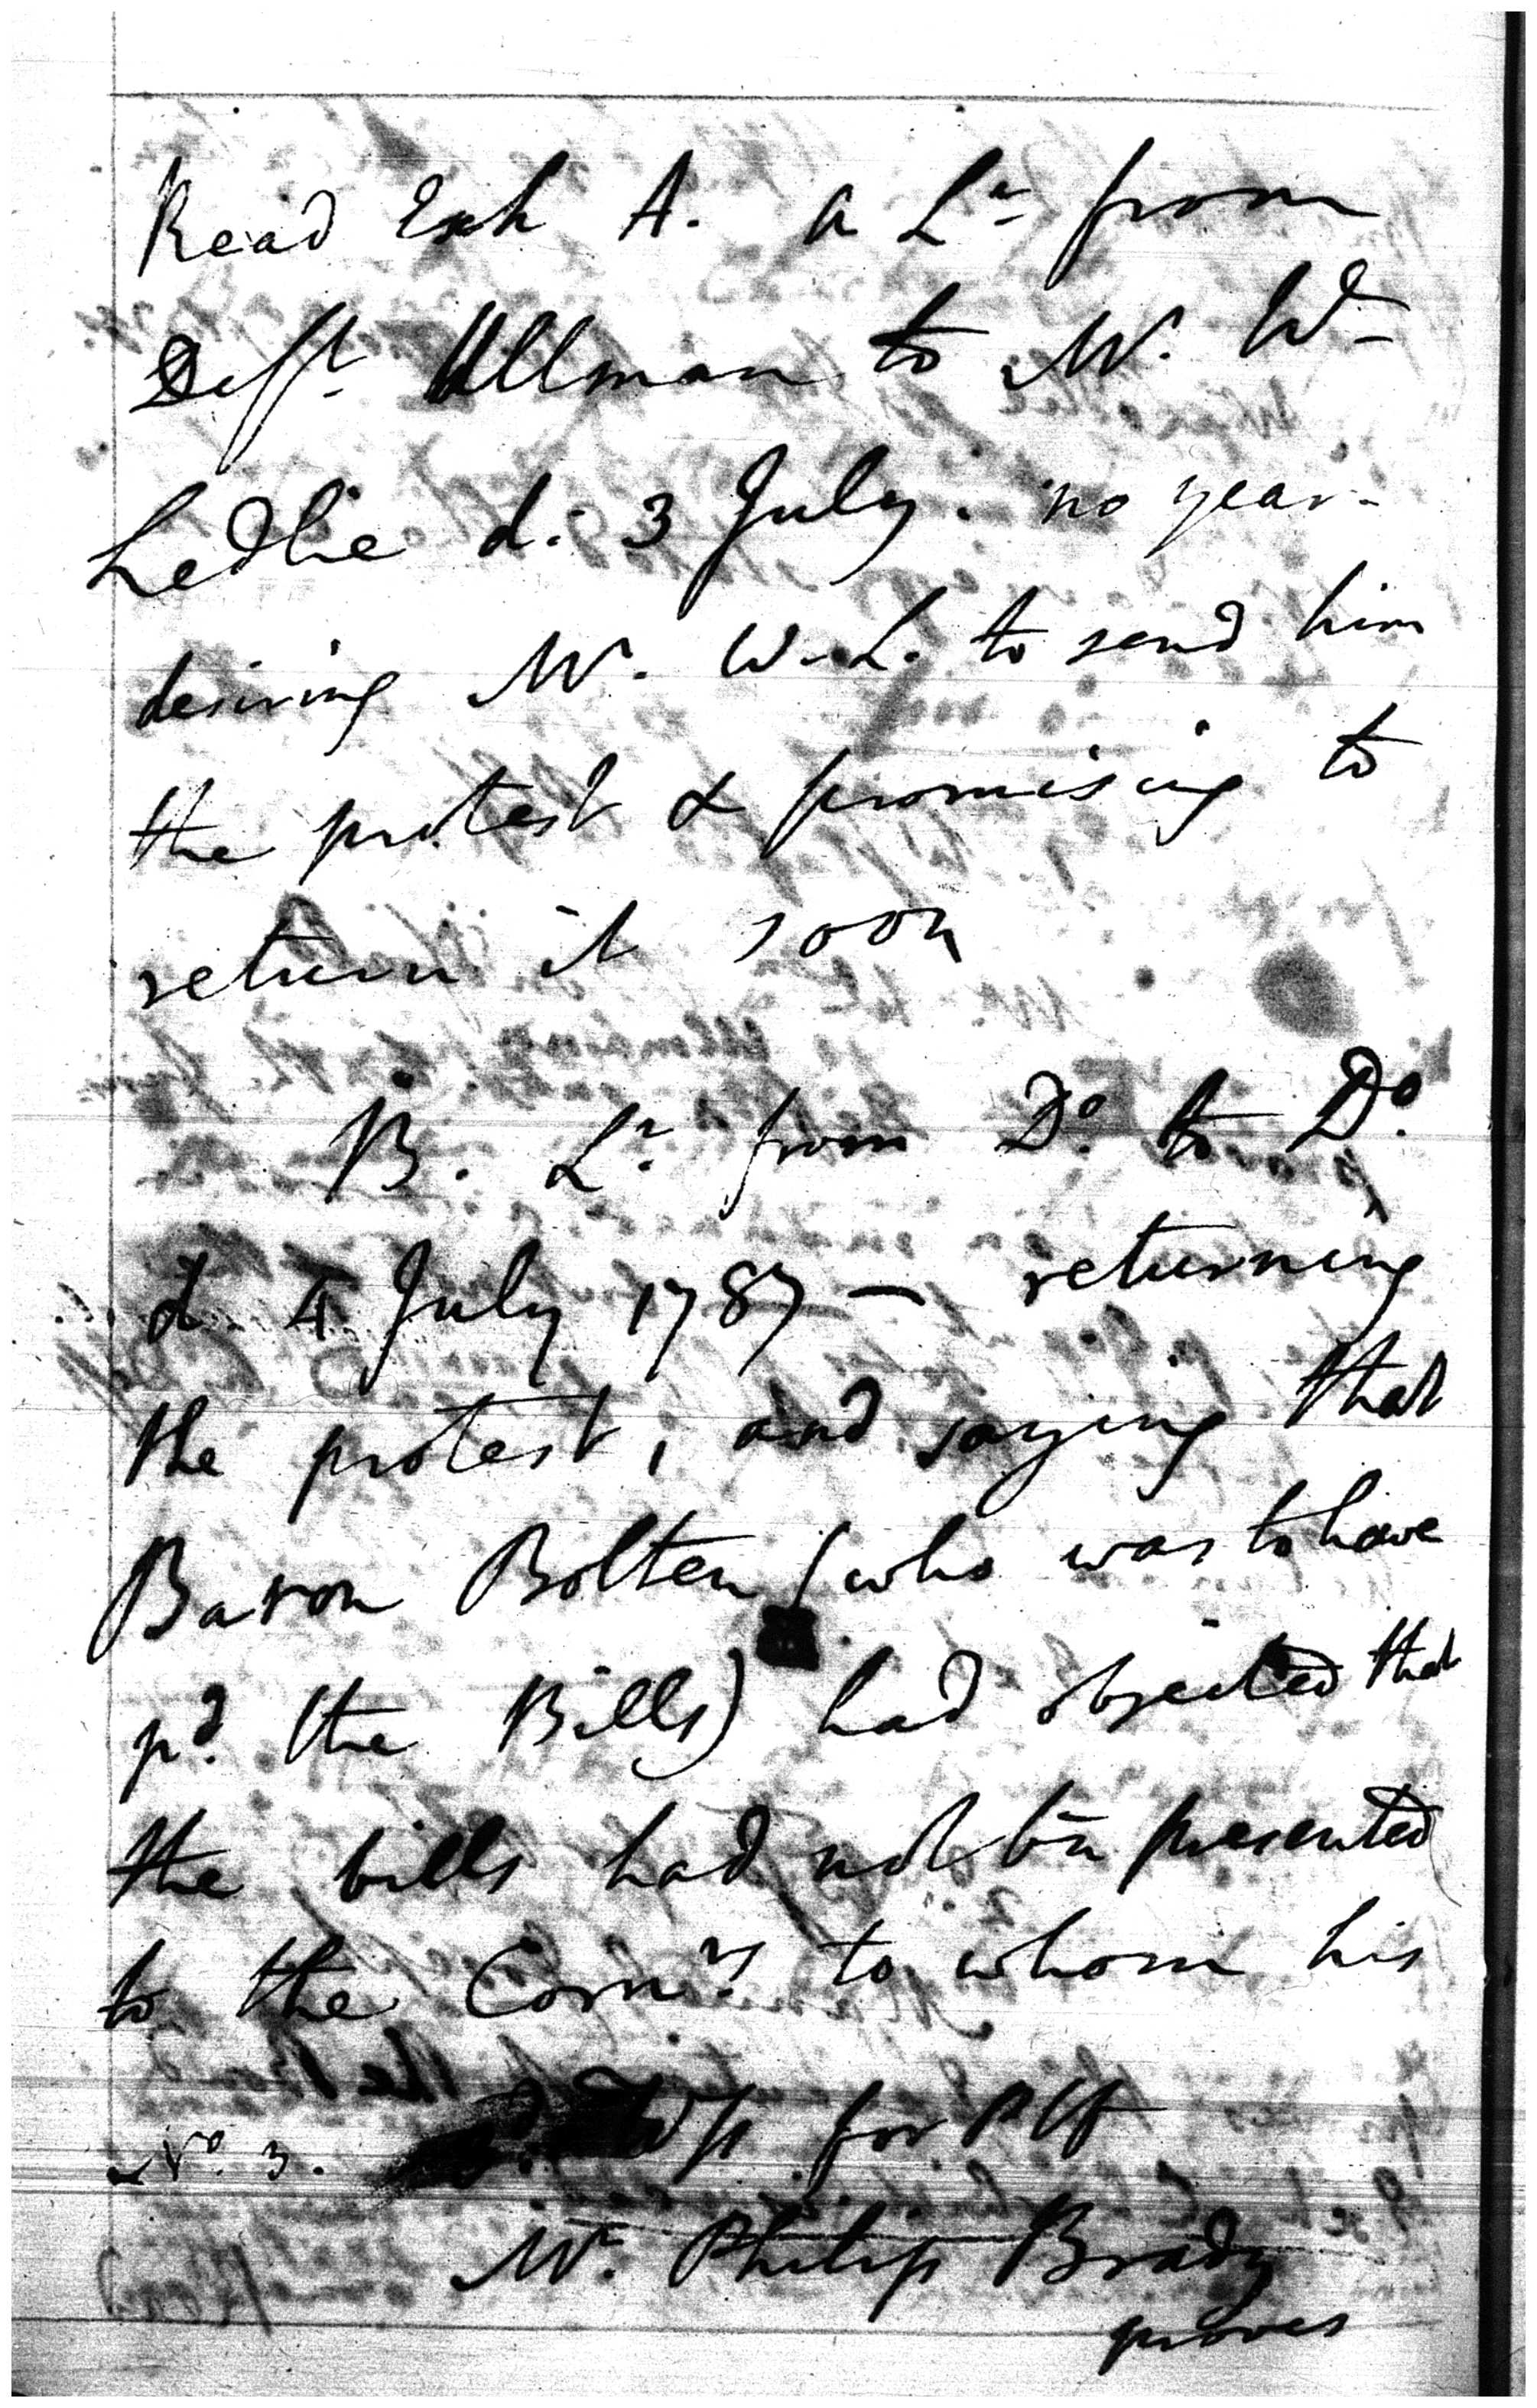 Read Exh A. a Lr from
Defft Ullman to Mr. Wm
Ledlie d. 3 July. no year -
desiring Mr. W. L. to send him
the protest & promising to
return it soon
B. Lr. from Do. to Do.
d 4 July 1787 — returning
the protest, and saying that
Baron Bolten (who was to have
pd. the Bills) had objected that
the bills had not bn presented
to the Comrs. to whom his
No. 3. Wss for Plf
Mr. Philip Brady
proves